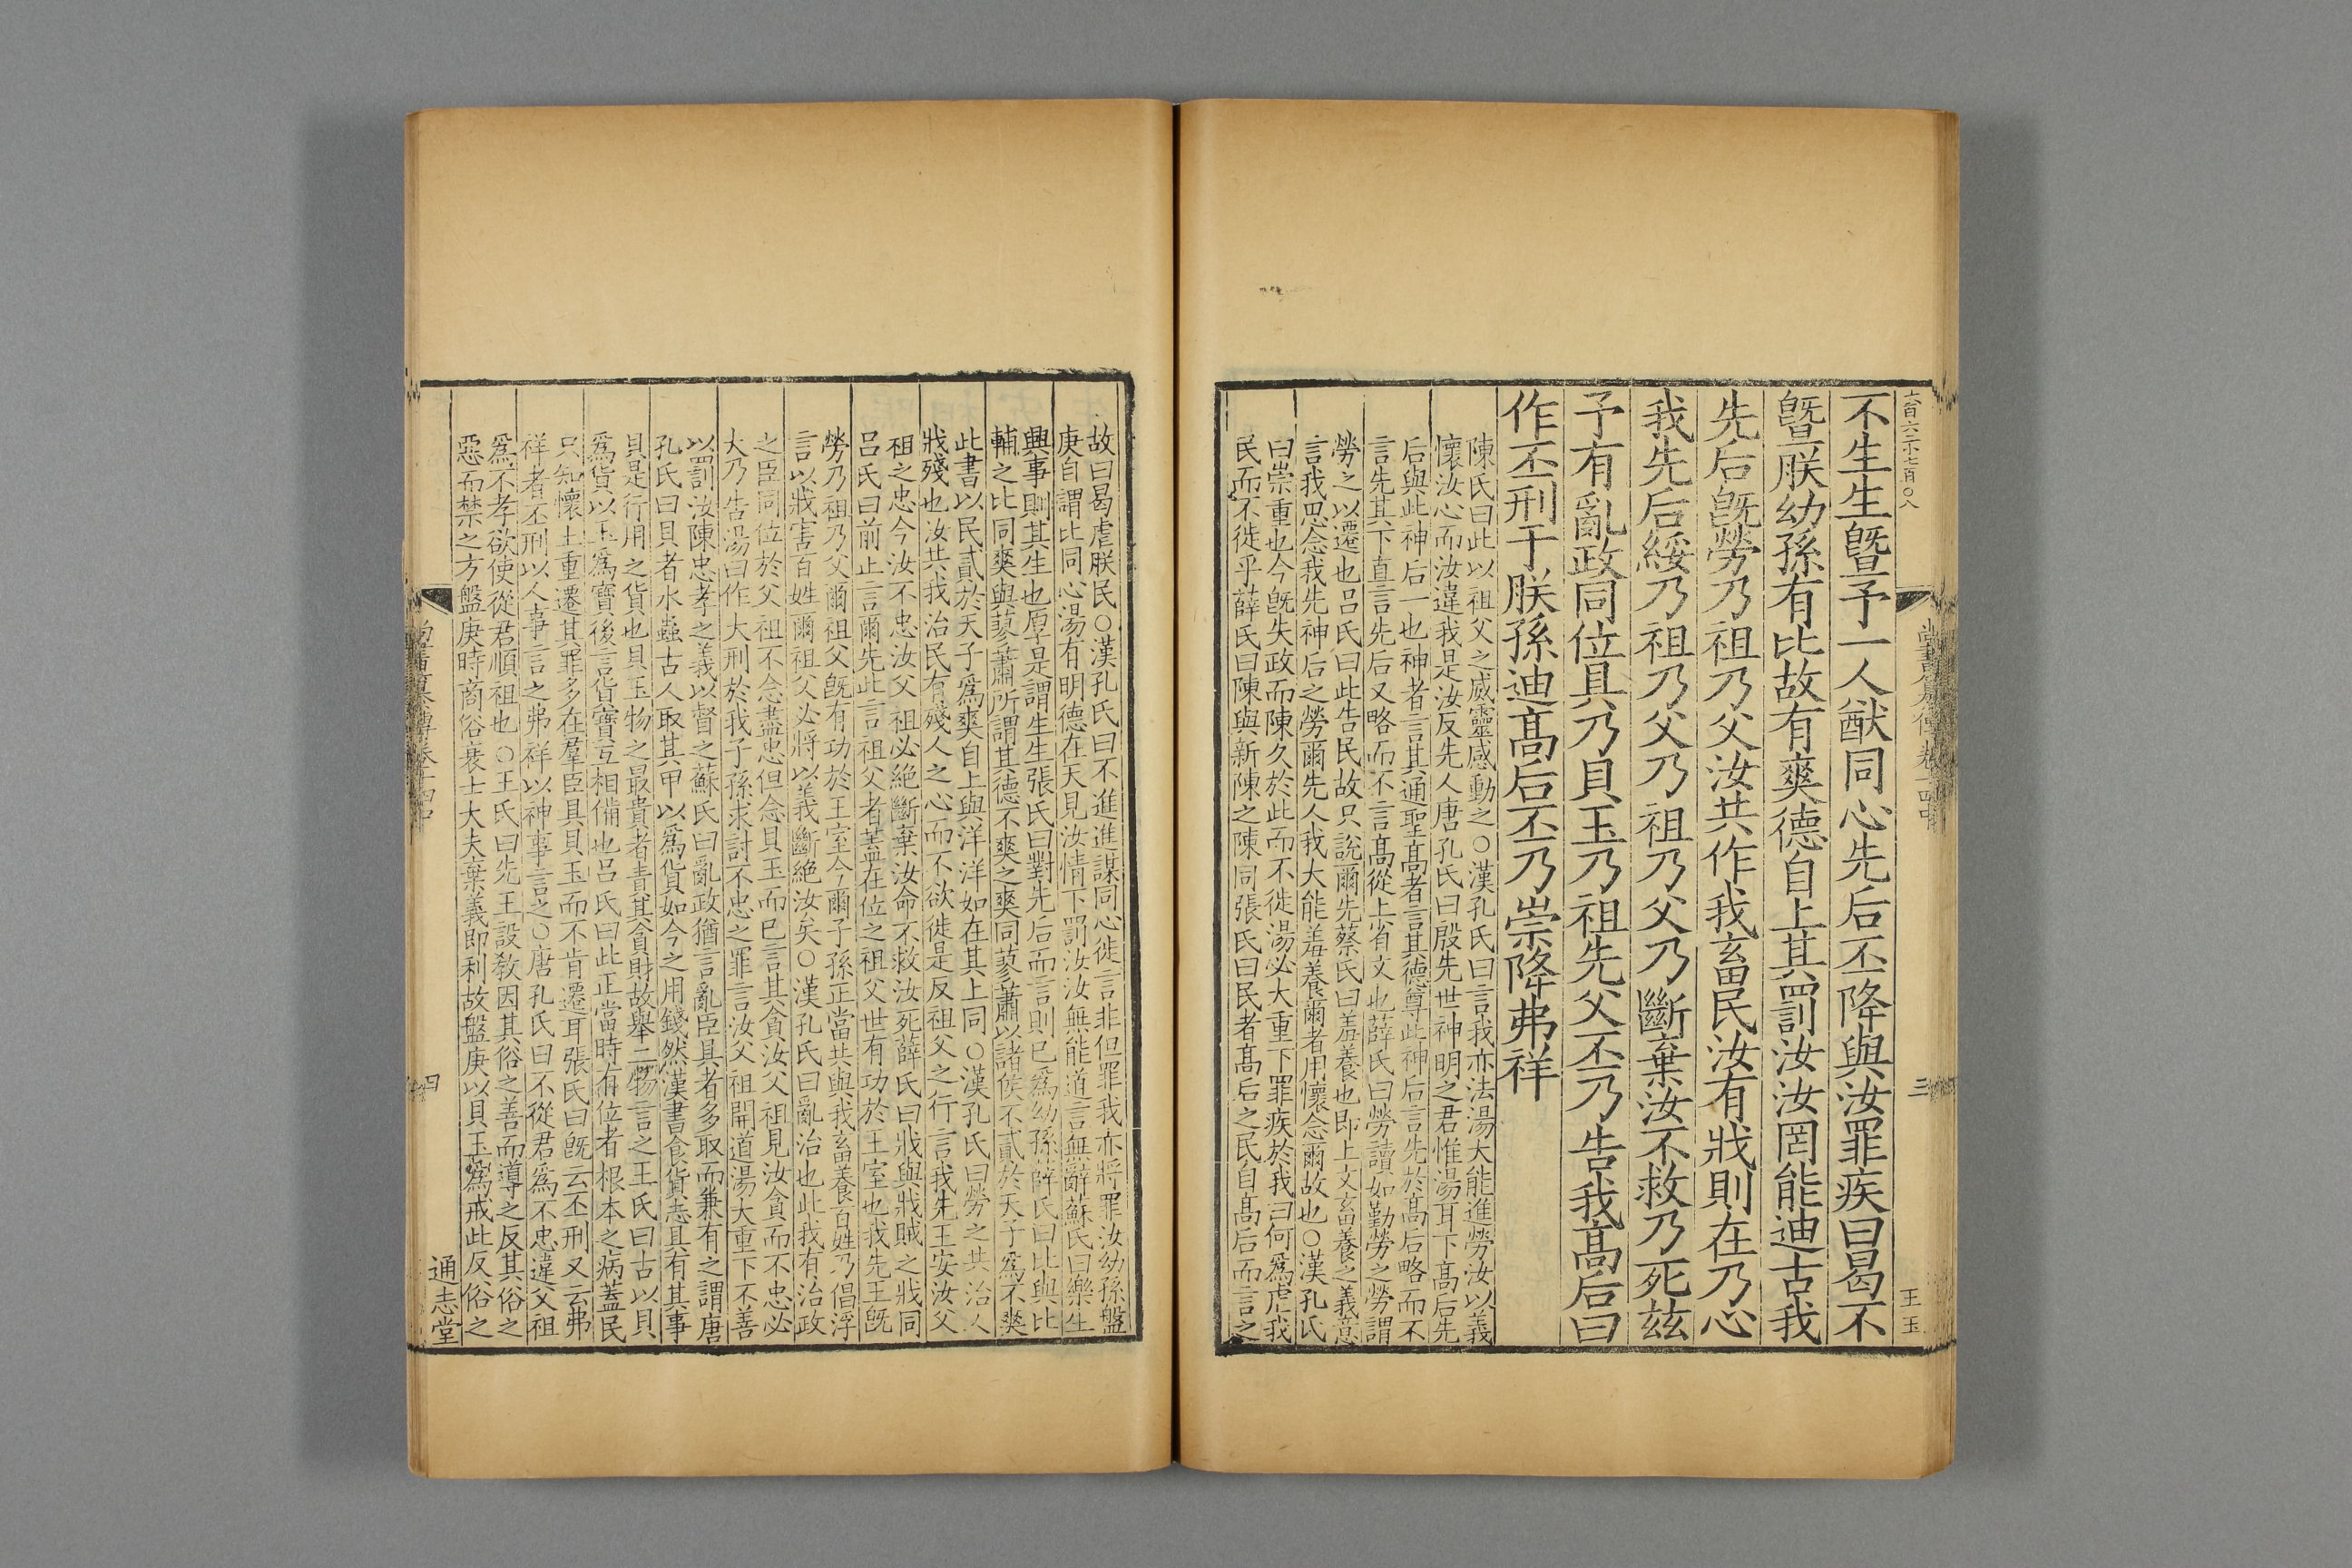 不生生曁予一人猷同心先后丕降與汝罪疾曰曷不
曁朕幼孫有比故有爽德自上其罰汝汝罔能迪古我
先后旣勞乃祖乃父汝共作我畜民汝有戕則在乃心
我先后綏乃祖乃父乃祖乃父乃斷棄汝不救乃死茲
予有亂政同位具乃貝玉乃祖先父丕乃告我髙后曰
作丕刑于朕孫迪髙后丕乃崇降弗祥
陳氏曰此以祖父之威靈感動之○漢孔氏曰言我亦法湯大能進勞汝以義
懷汝心而汝違我是汝反先人唐孔氏曰殷先世神明之君惟湯耳下髙后先
后與此神后一也神者言其通聖髙者言其德尊此神后言先於髙后略而不
言先其下直言先后又略而不言髙從上省文也薛氏曰勞讀如勤勞之勞謂
勞之以遷也呂氏曰此告民故只說爾先蔡氏曰羞養也即上文畜養之義意
言我思念我先神后之勞爾先人我大能羞養爾者用懷念爾故也○漢孔氏
曰崇重也今旣失政而陳久於此而不徙湯必大重下罪疾於我曰何爲虐我
民而不徙乎薛氏曰陳與新陳之陳同張氏曰民者髙后之民自髙后而言之
王玉
三
故曰曷虐朕民○漢孔氏曰不進進謀同心徙言非但罪我亦將罪汝幼孫盤
庚自謂比同心湯有明德在天見汝情下罰汝汝無能道言無辭蘇氏曰樂生
興事則其生也厚是謂生生張氏曰對先后而言則已爲幼孫薛氏曰比與比
輔之比同爽與蓼蕭所謂其德不爽之爽同蓼蕭以諸侯不貳於天子爲不爽
此書以民貳於天子爲爽自上與洋洋如在其上同○漢孔氏曰勞之共治人
戕殘也汝共我治民有殘人之心而不欲徙是反祖父之行言我先王安汝父
祖之忠今汝不忠汝父祖必絶斷棄汝命不救汝死薛氏曰戕與戕賊之戕同
呂氏曰前止言爾先此言祖父者蓋在位之祖父世有功於王室也我先王旣
勞乃祖乃父爾祖父旣有功於王室今爾子孫正當共與我畜養百姓乃倡浮
言以戕害百姓爾祖父必將以義斷絶汝矣○漢孔氏曰亂治也此我有治政
之臣同位於父祖不念盡忠但念貝玉而已言其貪汝父祖見汝貪而不忠必
大乃告湯曰作大刑於我子孫求討不忠之罪言汝父祖開道湯大重下不善
以罰汝陳忠孝之義以督之蘇氏曰亂政猶言亂臣具者多取而兼有之謂唐
孔氏曰貝者水蟲古人取其甲以爲貨如今之用錢然漢書食貨志具有其事
貝是行用之貨也貝玉物之最貴者責其貪財故舉二物言之王氏曰古以貝
爲貨以玉爲寶後言貨寶互相備也呂氏曰此正當時有位者根本之病蓋民
只知懷土重遷其罪多在羣臣具貝玉而不肯遷耳張氏曰旣云丕刑又云弗
祥者丕刑以人事言之弗祥以神事言之○唐孔氏曰不從君爲不忠違父祖
爲不孝欲使從君順祖也○王氏曰先王設敎因其俗之善而導之反其俗之
惡而禁之方盤庚時商俗衰士大夫棄義即利故盤庚以貝玉爲戒此反俗之
四
通志堂